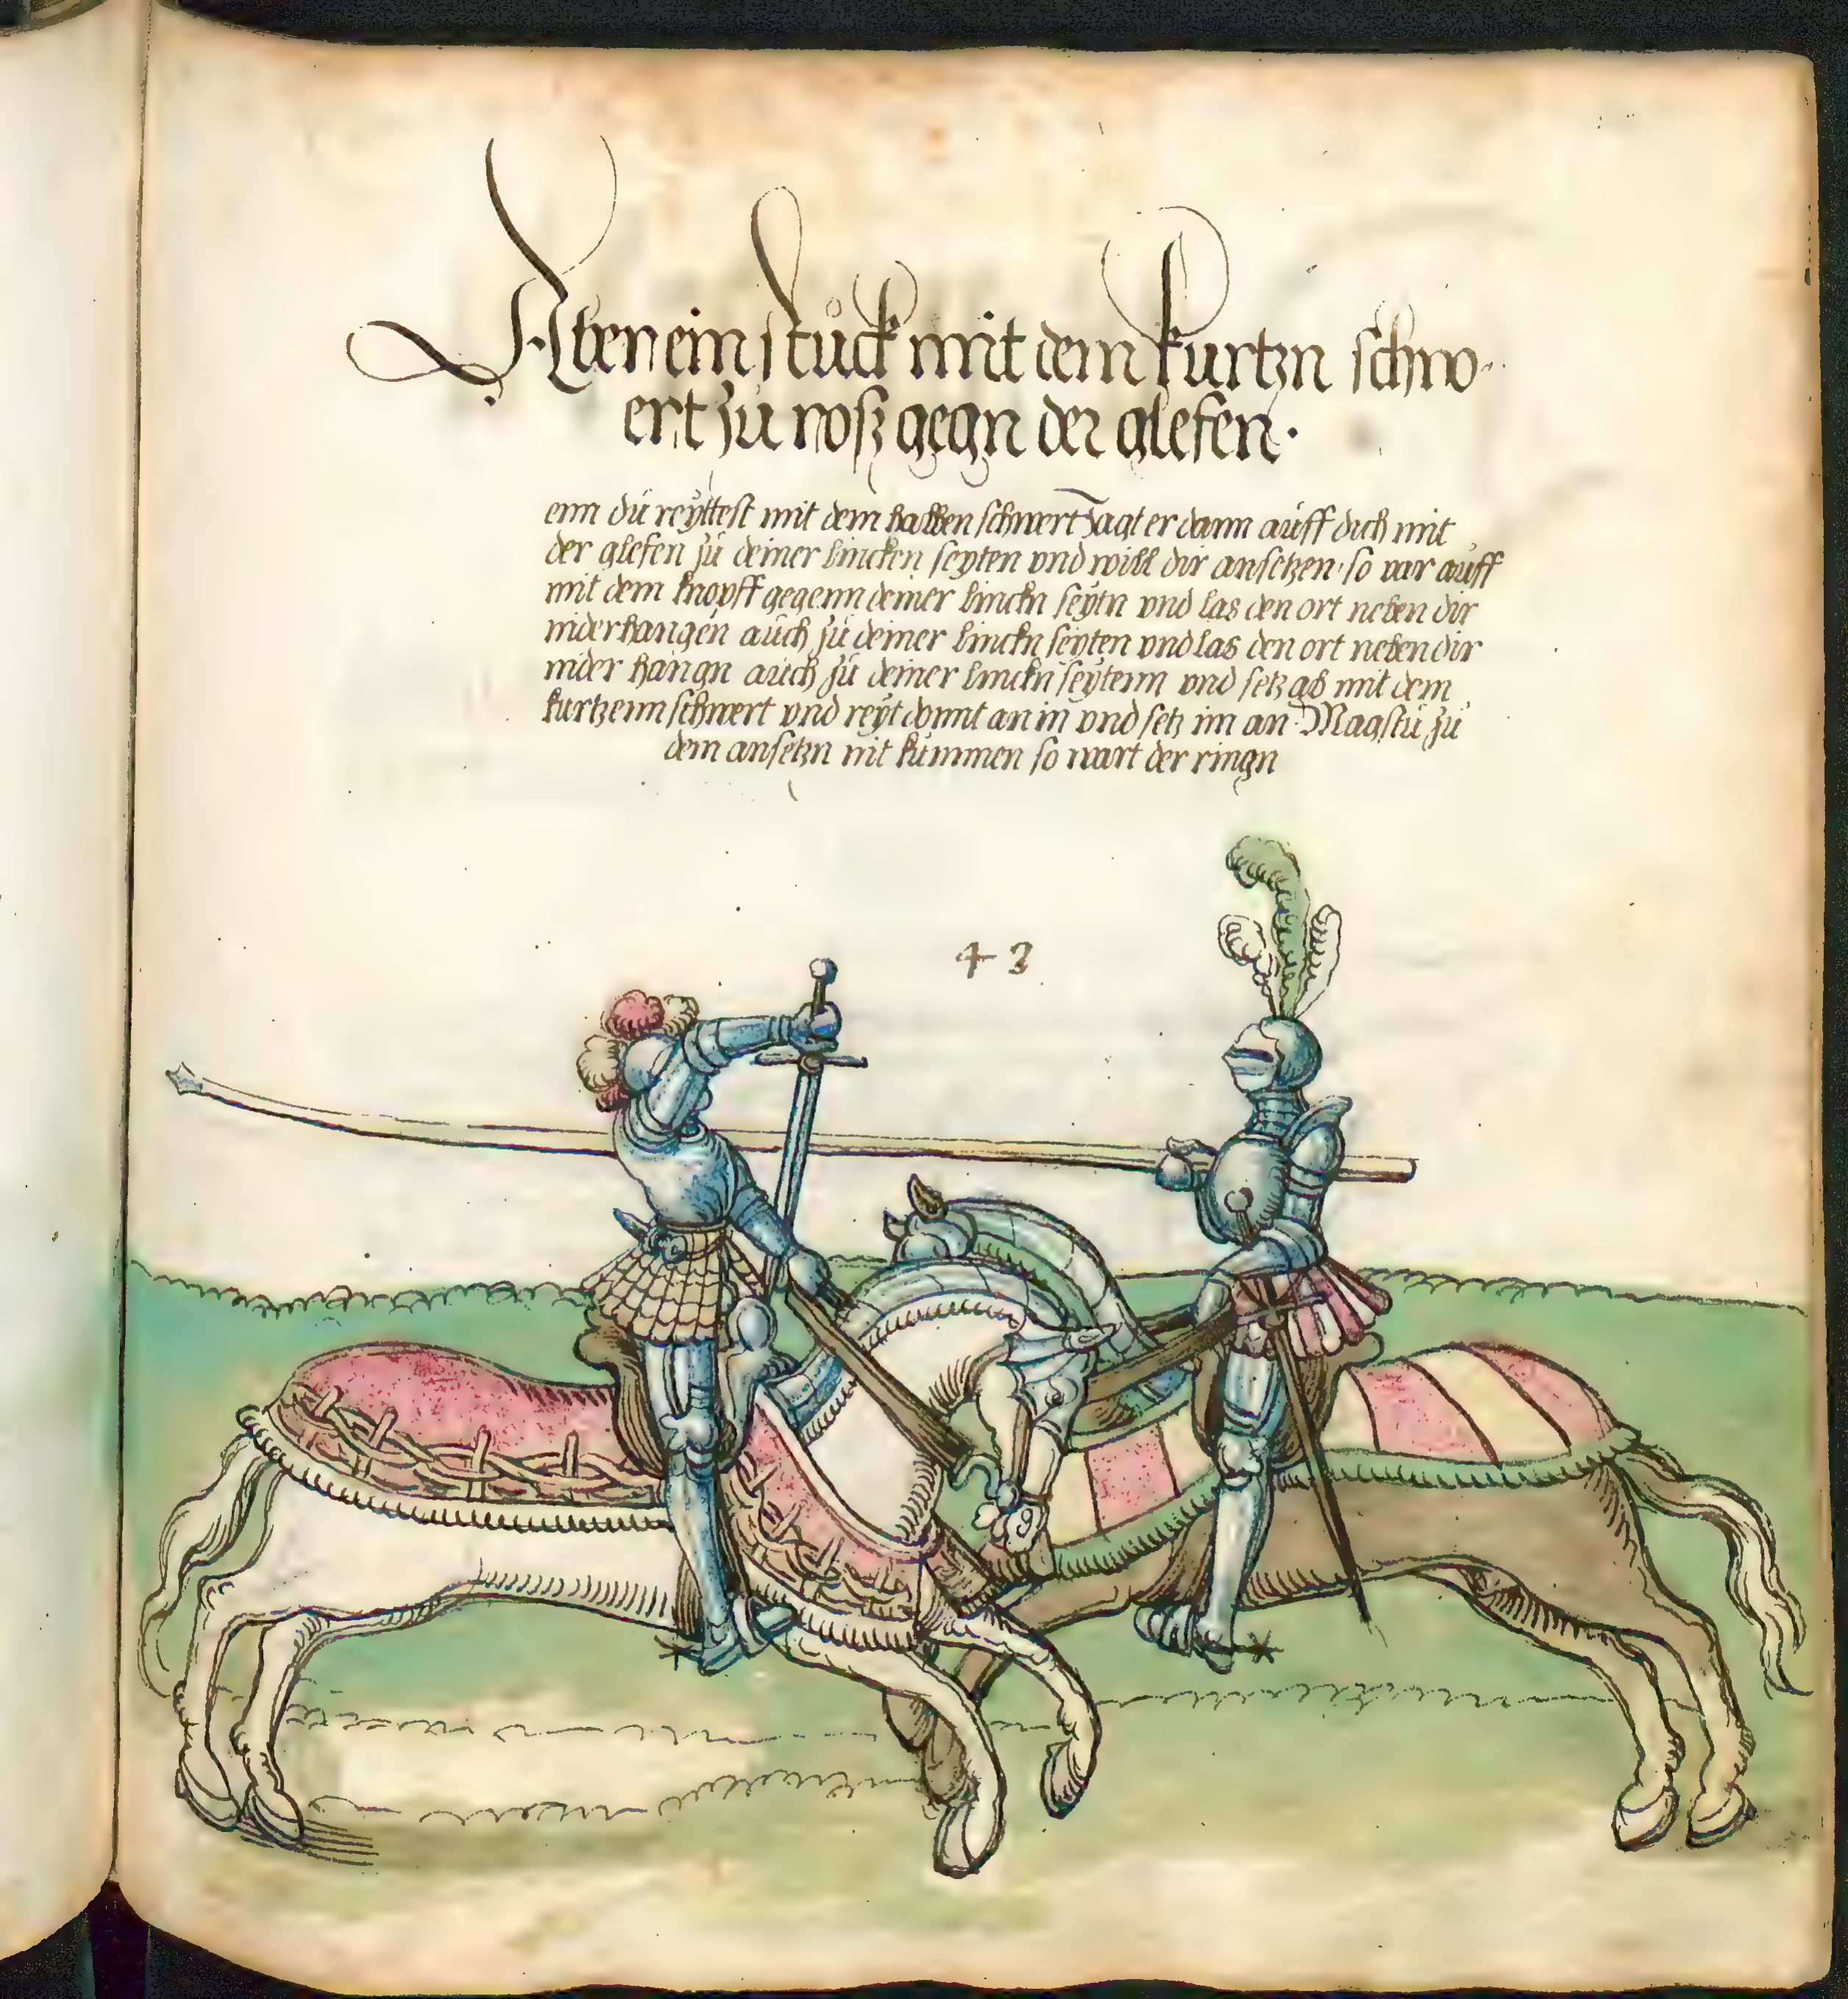 Aber ein stuck mit dem kurtzn schw-
ert zu roß gegn der glefen·
enn du reyttest mit dem halben schwert Jagt er dann auff dich mit
der glefen zu deiner lincken seyten vnd will dir ansetzen· so var auff
mit dem knopff gegenn deiner linckn seytn vnd las den ort neben dir
niderhangen auch zu deiner linckn seyten vnd las den ort neben dir
nider hangn auch zu deiner linckn seytenn vnd setz ab mit dem
kurtzenn schwert vnd reyt domit an in vnd setz im an· Magstu zu
dem ansetzn nit kummen so wart der ringn
43